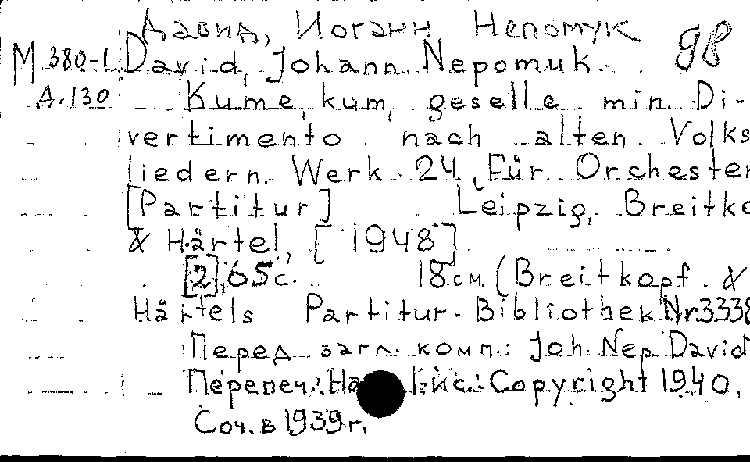 Давид, Иоганн Непомук
98
М 380-1 David, Johann Nepomuk.
А.130 Kume, kum, geselle min. Di-
vertimento nach alten Volks
liedern. Werk 24. Für Orchester
[Partitur] Leipzig, Breitko
& Härtel, [1948].
[2], 65 с. 18 см. (Breitkopf &
Härtels Partitur-Bibliothek Nr.3338
Перед загл. комп.: Joh. Nep. David
Перепеч. На Copyright 1940.
Соч. в 1939 г.